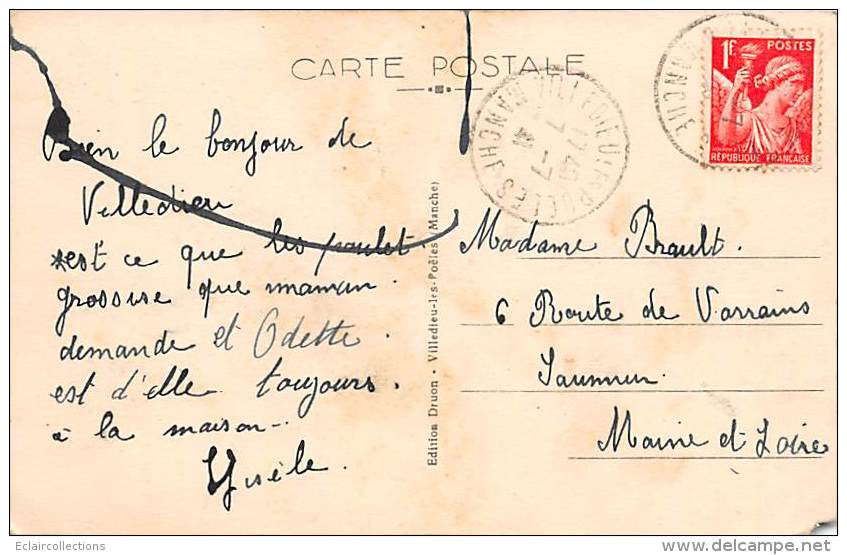 CARTE POSTALE
1F POSTES
RÉPUBLIQUE FRANÇAISE
VILLEDIEU LES POELES MANCHE
1740
7-7
41
Bien le bonjour de
Villedieu
est ce que les poulet
grossise que maman
demande et Odette
est d'elle toujours.
à la maison
Gisèle.
Edition Druon - Villedieu-les-Poêles (Manche)
Madame Brault.
6 Route de Varrains
Saumur.
Maine et Loire
Eclaircollections
www.delcampe.net